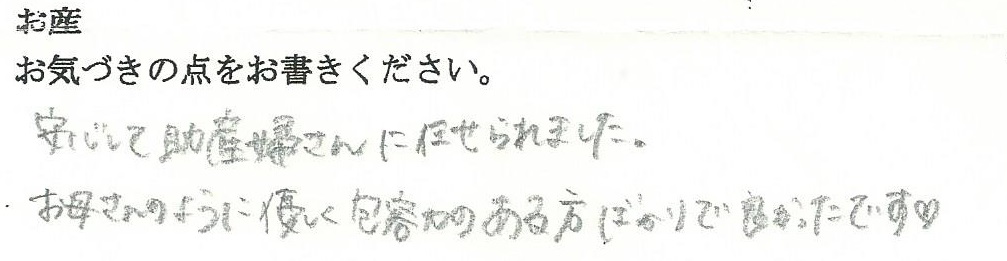 お産
お気づきの点をお書きください。
安心して助産婦さんに任せられました。
お母さんのように優しく包容力のある方ばかりで良かったです♡